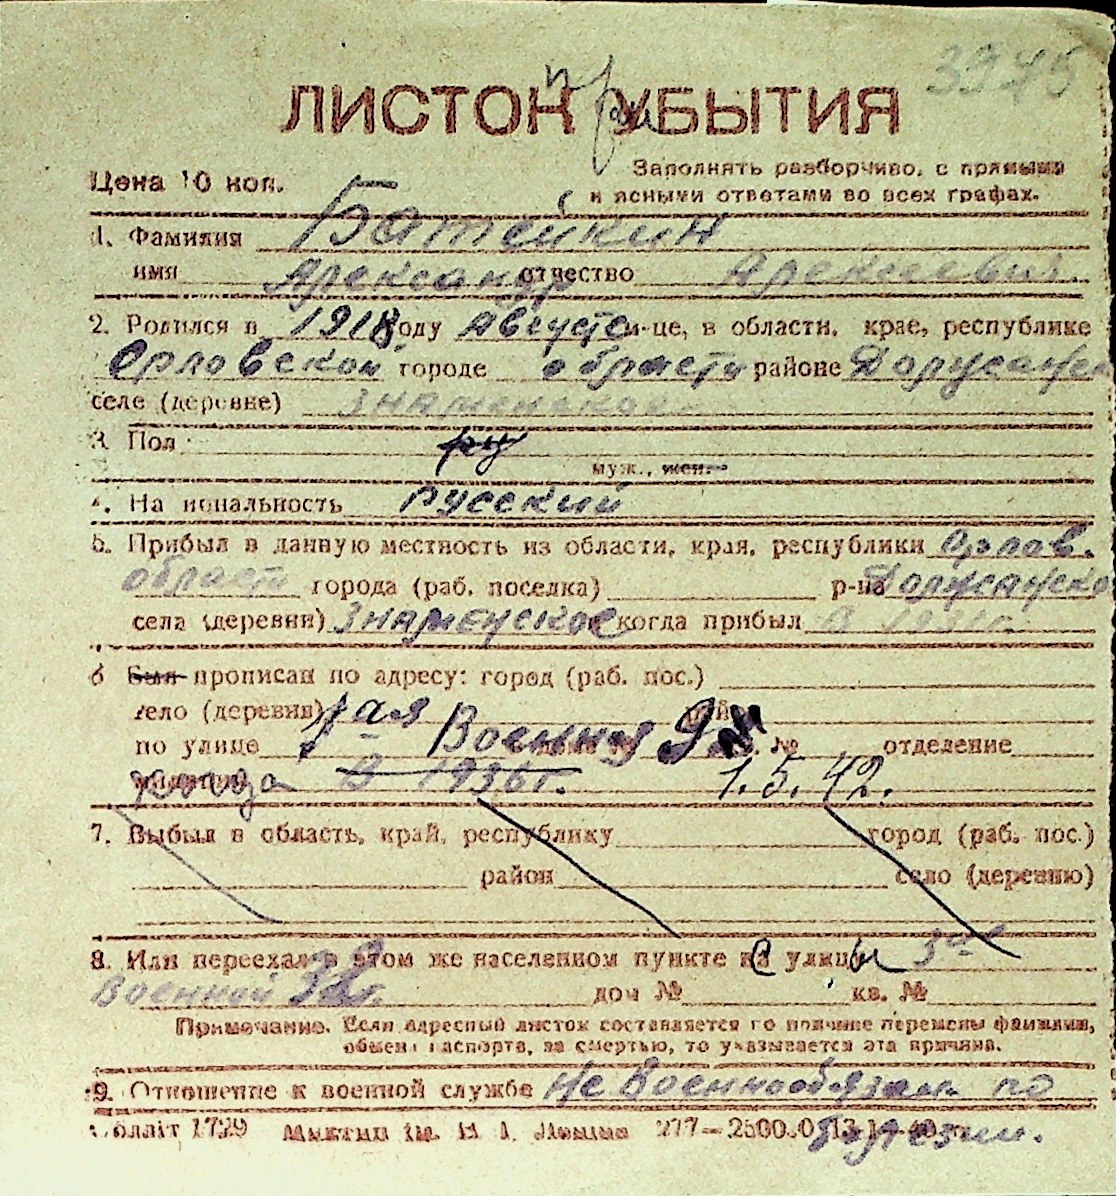 3945
ЛИСТОК УБЫТИЯ
Цена 10 коп.
Заполнять разборчиво, с прямыми
и ясными ответами во всех графах.
1. Фамилия Батейкин
имя Александр отчество Алексеевич.
2. Родился в 1918 году Августе м-це, в области, крае, республике
Орловской городе области районе
селе (деревне) Знаменское
3. Пол
муж., жен.
4. Национальность Русский
5. Прибыл в данную местность из области, края, республики Орлов.
области города (раб. поселка) р-на Должанско
села (деревни) Знаменское и когда прибыл в 1931г.
6 Был прописан по адресу: город (раб. пос.)
село (деревня) 1ая
по улице Военная 9 кв. № отделение
когда в 1936г. 1.5.42.
7. Выбыл в область, край, республику город (раб. пос.)
район село (деревню)
8. Или переехал в этом же населенном пункте на улицу 3ая
Военной дом № кв. №
Примечание. Если адресный листок составляется по причине перемены фамилии,
обмена паспорта, за смертью, то указывается эта причина.
9. Отношение к военной службе Не Военнообязан по
болезни.
Обллiт 1729